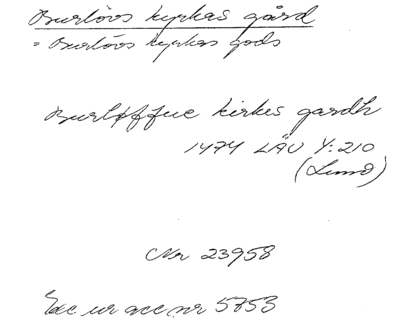 Burlövs kyrkas gård
= Burlövs kyrkas gods
Burløffue kirkes gardh
1474 LÄU Y:210
(Lund)
Nr 23958
Exc ur acc nr 5753